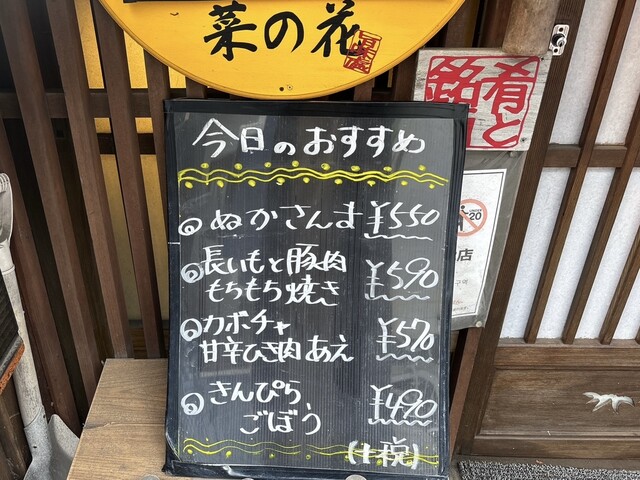 菜の花
肴と
銘
今日のおすすめ
ぬかさんま ¥550
長いもと豚肉
もちもち焼き ¥590
カボチャ
甘辛ひき肉あえ ¥570
きんぴら
ごぼう ¥490
(+税)
20
店